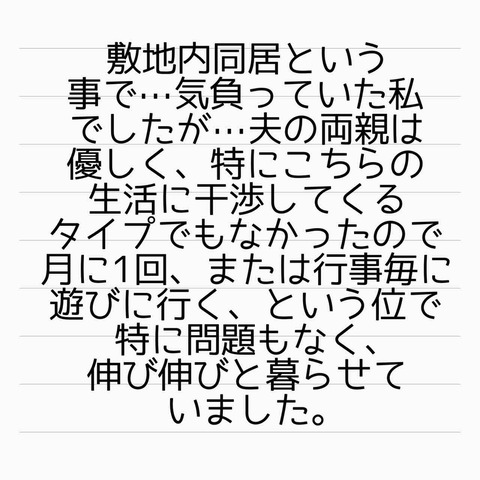 敷地内同居という
事で…気負っていた私
でしたが…夫の両親は
優しく、特にこちらの
生活に干渉してくる
タイプでもなかったので
月に1回、または行事毎に
遊びに行く、という位で
特に問題もなく、
伸び伸びと暮らせて
いました。